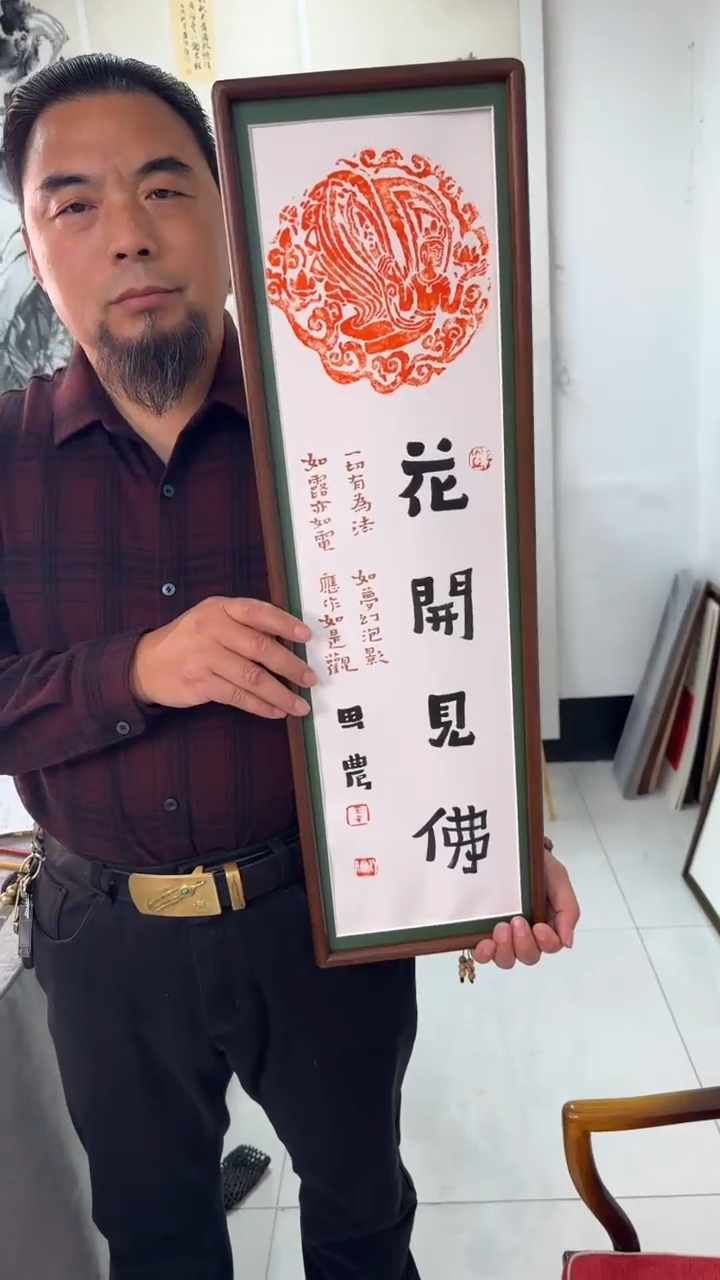 花開見佛
一切有為法 如夢幻泡影
如露亦如電 應作如是觀